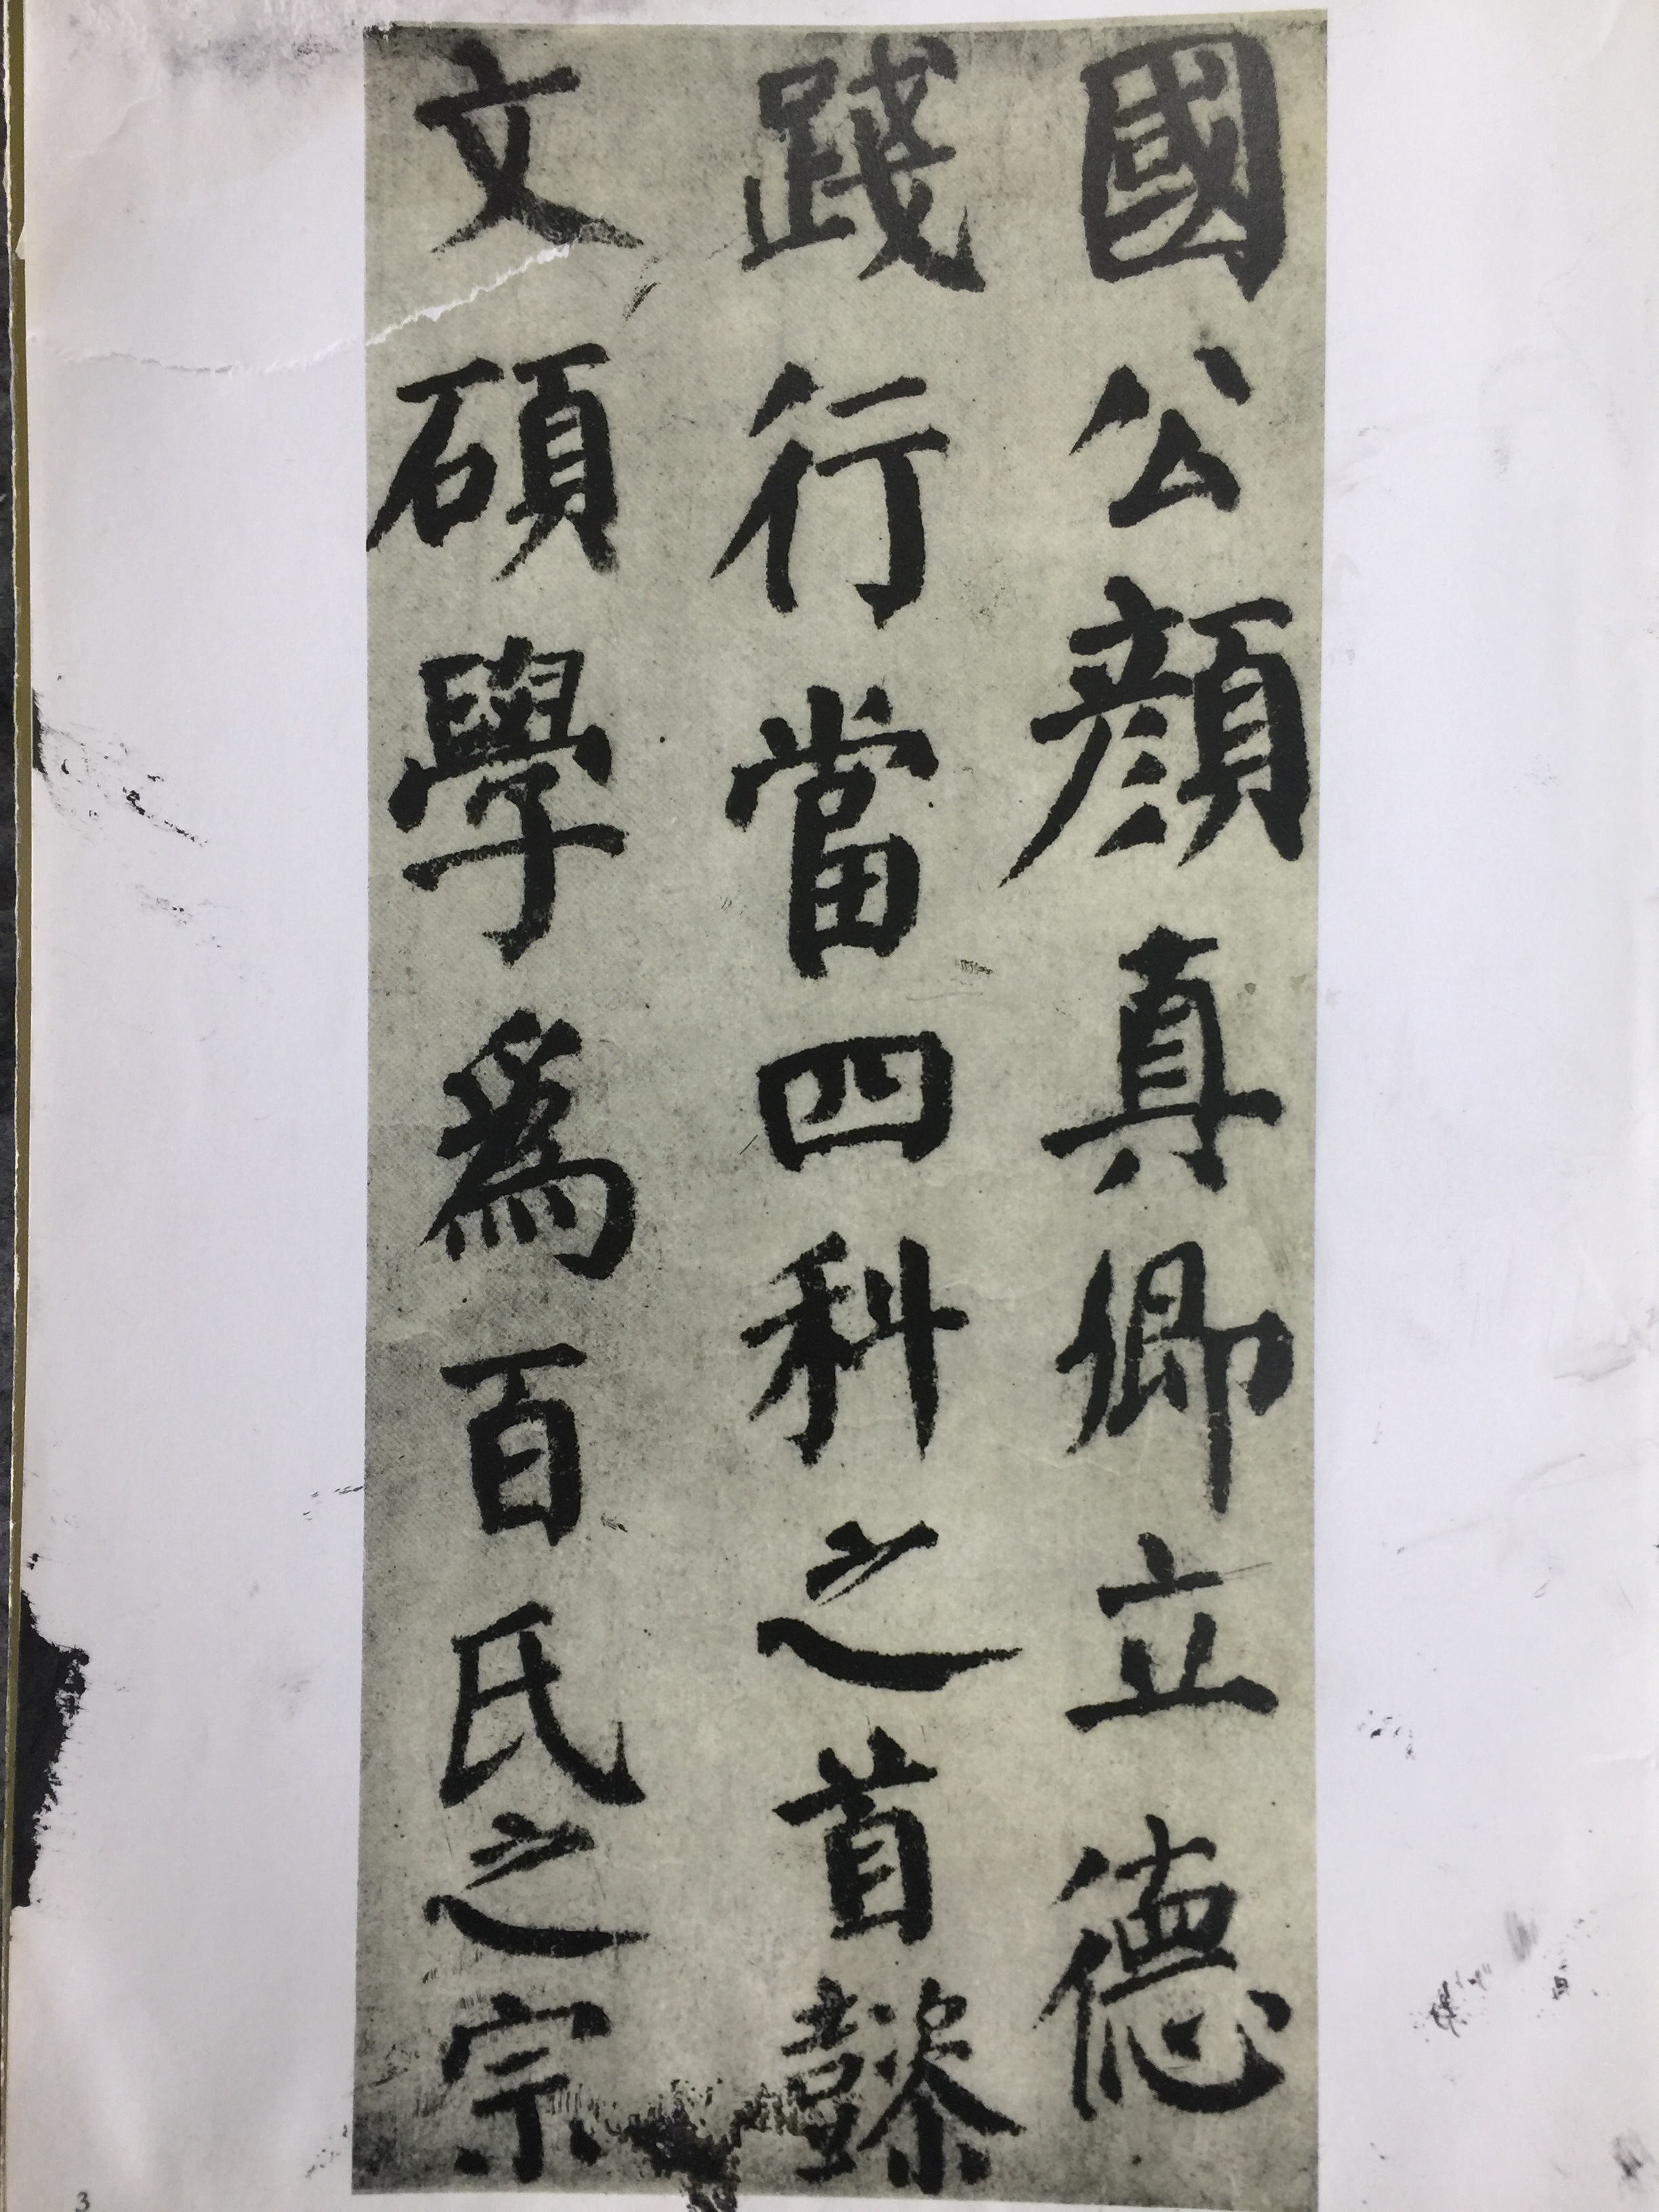 國公顏真卿立德
踐行當四科之首懿
文碩學為百氏之宗
3